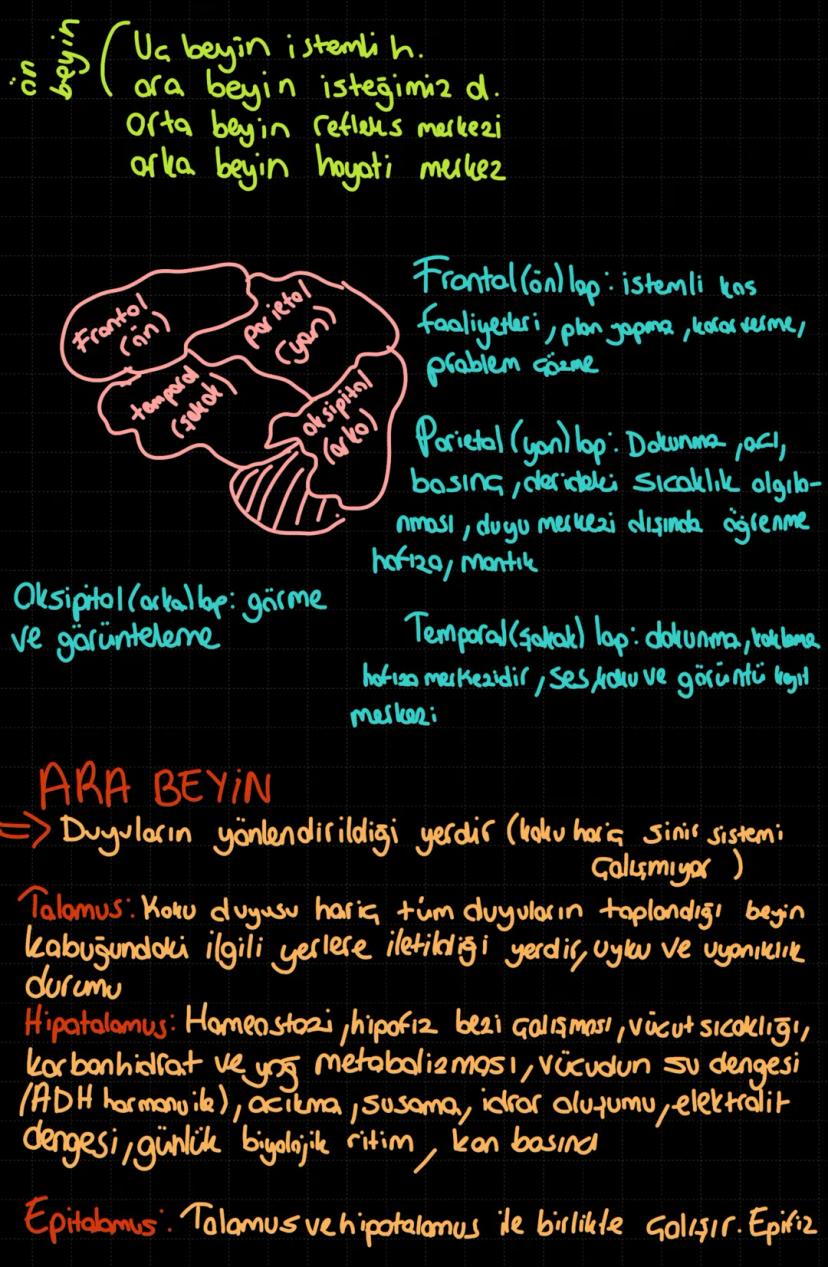 ön beyin
Uc beyin istemli h.
ara beyin isteğimiz d.
orta beyin refleks merkezi
arka beyin hayati merkez
Frontal (ön)
parietal (yan)
temporal (şakak)
oksipital (arka)
Frontal (ön) lop: istemli kas
faaliyetleri, plan yapma, karar verme,
problem çözme
Parietal (yan) lop: Dokunma, acı,
basınç, derideki sıcaklık algıla-
nması, duyu merkezi dışında öğrenme
hafıza, mantık
Oksipital (arka) lop: görme
ve görünteleme
Temporal (şakak) lop: dokunma, koklama
hafıza merkezidir, ses, koku ve görüntü kayıt
merkezi
ARA BEYİN
⇒ Duyuların yönlendirildiği yerdir (koku hariç sinir sistemi
çalışmıyor)
Talamus: Koku duyusu hariç tüm duyuların toplandığı beyin
kabuğundaki ilgili yerlere iletildiği yerdir, uyku ve uyanıklık
durumu
Hipotalamus: Homeostazi, hipofiz bezi çalışması, vücut sıcaklığı,
karbonhidrat ve yağ metabolizması, vücudun su dengesi
(ADH hormonu ile), acıkma, susama, idrar oluşumu, elektrolit
dengesi, günlük biyolojik ritim, kan basıncı
Epitalamus: Talamus ve hipotalamus ile birlikte çalışır. Epifiz